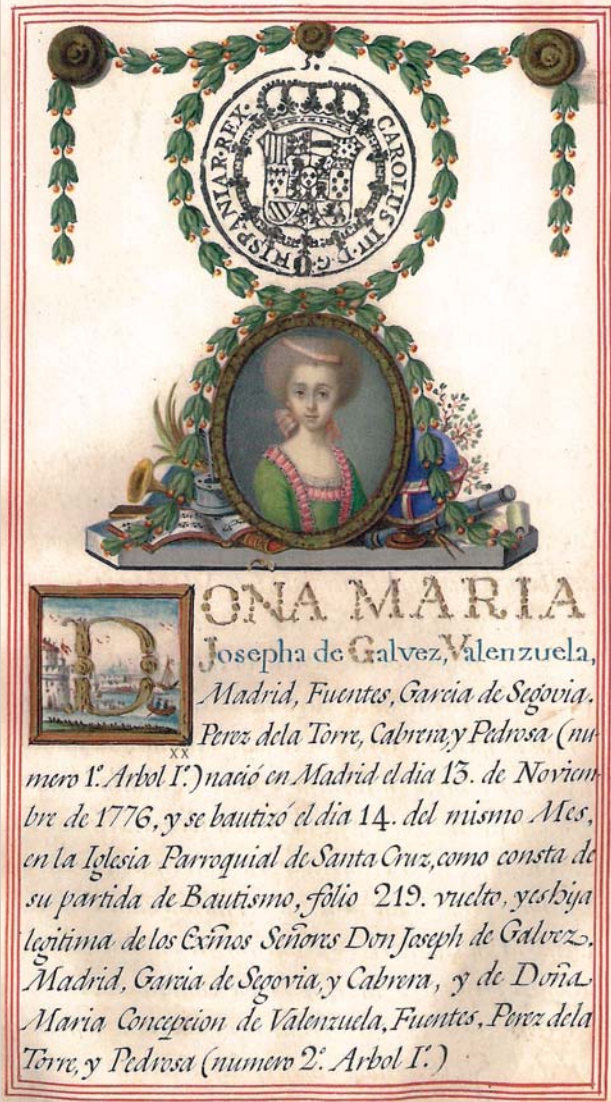 5.
CAROLUS III·D·G·HISPANIAR·REX·
DONA MARIA
Josepha de Galvez, Valenzuela,
Madrid, Fuentes, Garcia de Segovia.
Perez dela Torre, Cabrera, y Pedrosa (nu-
mero 1º. Arbol Iº.) nació en Madrid el dia 13. de Noviem-
bre de 1776, y se bautizó el dia 14. del mismo Mes,
en la Iglesia Parroquial de Santa Cruz, como consta de
su partida de Bautismo, folio 219. vuelto, y es hija
legitima de los Exm̃os Señores Don Joseph de Galvez.
Madrid, Garcia de Segovia, y Cabrera, y de Doña
Maria Concepcion de Valenzuela, Fuentes, Perez dela
Torre, y Pedrosa (numero 2º. Arbol Iº.)
XX